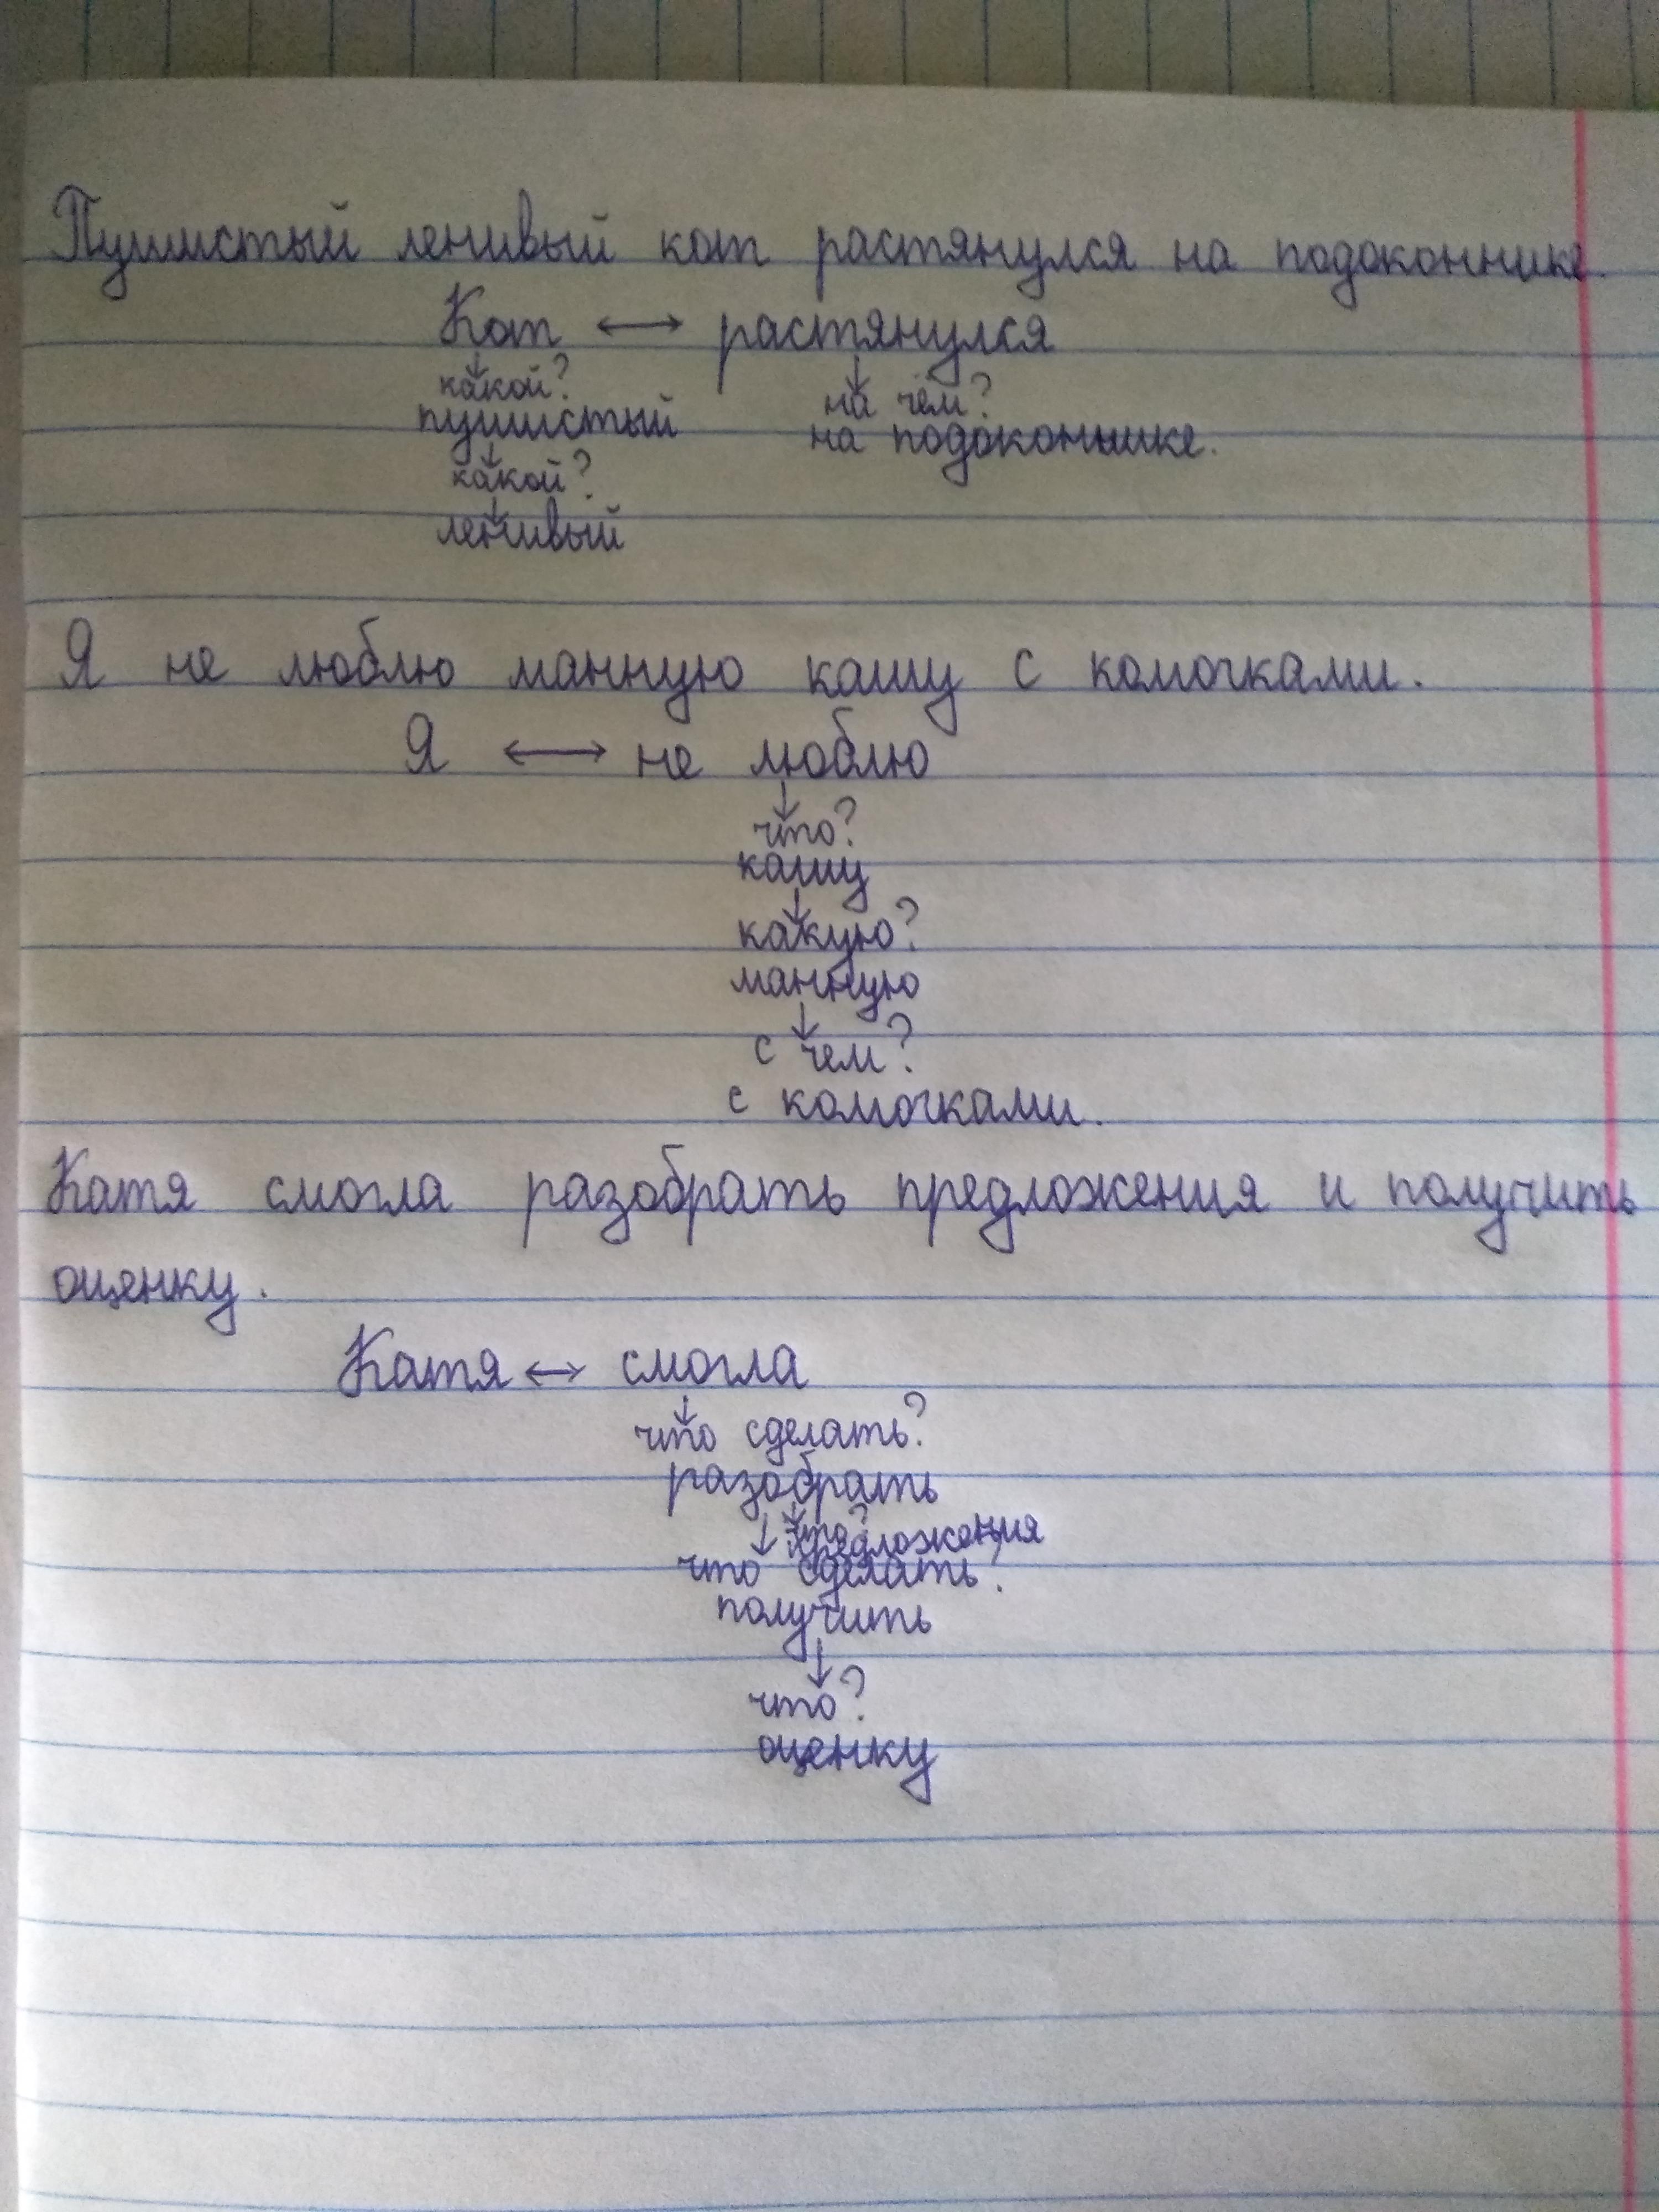 Пушистый ленивый кот растянулся на подоконнике.
Кот ↔ растянулся
↓ ↓
какой? на чём?
пушистый на подоконнике.
↓
какой?
↓
ленивый
Я не люблю манную кашу с комочками.
Я ↔ не люблю
↓
что?
кашу
↓
какую?
манную
↓
с чем?
с комочками.
Катя смогла разобрать предложения и получить
оценку.
Катя ↔ смогла
↓
что сделать?
разобрать
↓ ↓ что?
предложения
что сделать?
получить
↓
что?
оценку